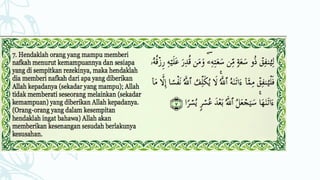 7. Hendaklah orang yang mampu memberi
nafkah menurut kemampuannya dan sesiapa
yang di sempitkan rezekinya, maka hendaklah
dia memberi nafkah dari apa yang diberikan
Allah kepadanya (sekadar yang mampu); Allah
tidak memberati seseorang melainkan (sekadar
kemampuan) yang diberikan Allah kepadanya.
(Orang-orang yang dalam kesempitan
hendaklah ingat bahawa) Allah akan
memberikan kesenangan sesudah berlakunya
kesusahan.
لِيُنفِقْ ذُو سَعَةٍ مِّن سَعَتِهِۦ ۖ وَمَن قُدِرَ عَلَيْهِ رِزْقُهُۥ
فَلْيُنفِقْ مِمَّآ ءَاتَىٰهُ ٱللَّهُ ۚ لَا يُكَلِّفُ ٱللَّهُ نَفْسًا إِلَّا مَآ
ءَاتَىٰهَا ۚ سَيَجْعَلُ ٱللَّهُ بَعْدَ عُسْرٍ يُسْرًا ﴿٧﴾